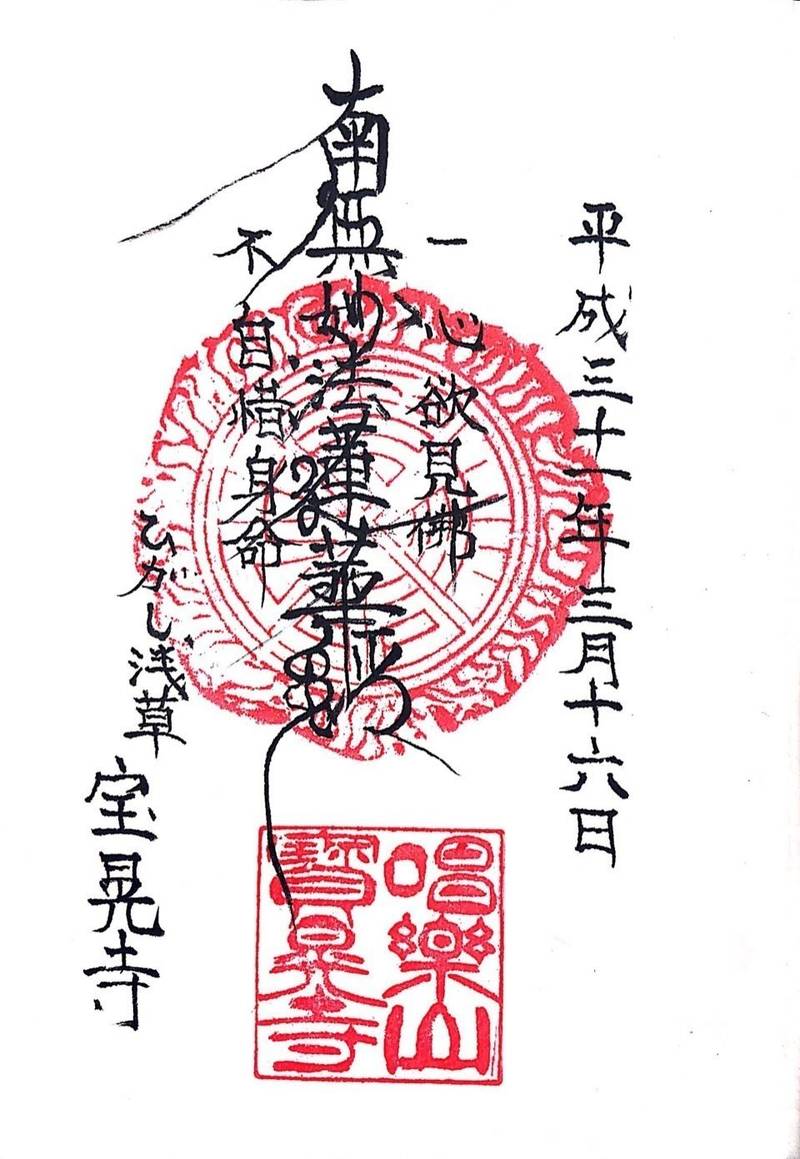 平成三十一年三月十六日
一心欲見佛
南無妙法蓮華経
不自惜身命
ひがし浅草
宝晃寺
唱樂山
寶晃寺